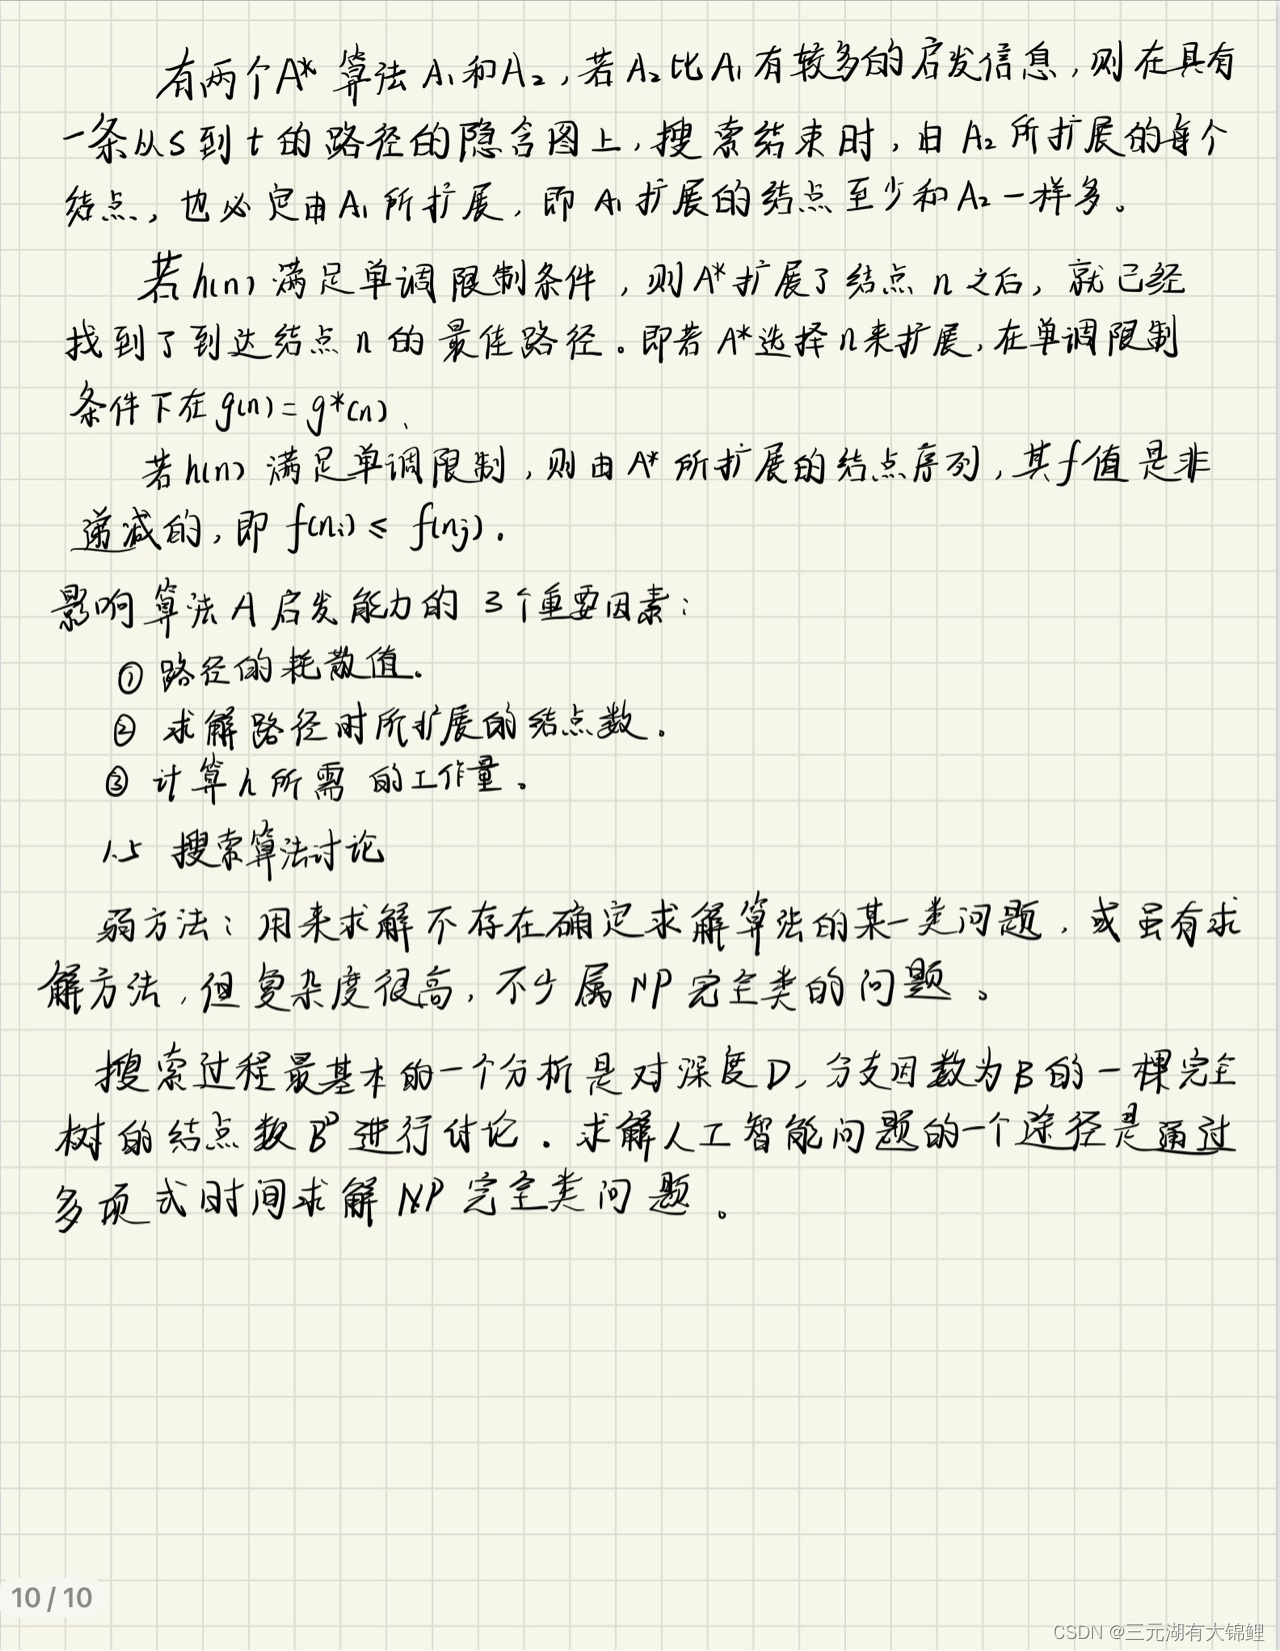 有两个A*算法A₁和A₂,若A₂比A₁有较多的启发信息,则在具有
一条从S到t的路径的隐含图上,搜索结束时,由A₂所扩展的每个
结点,也必定由A₁所扩展,即A₁扩展的结点至少和A₂一样多。
若h(n)满足单调限制条件,则A*扩展了结点n之后,就已经
找到了到达结点n的最佳路径。即若A*选择n来扩展,在单调限制
条件下在g(n)=g*(n)、
若h(n)满足单调限制,则由A*所扩展的结点序列,其f值是非
递减的,即f(ni)≤f(nj).
影响算法A启发能力的3个重要因素:
①路径的耗散值.
②求解路径时所扩展的结点数.
③计算h所需的工作量。
1.5 搜索算法讨论
弱方法:用来求解不存在确定求解算法的某一类问题,或虽有求
解方法,但复杂度很高,不少属NP完全类的问题。
搜索过程最基本的一个分析是对深度D,分支因数为B的一棵完全
树的结点数Bᴰ进行讨论.求解人工智能问题的一个途径是通过
多项式时间求解NP完全类问题。
10 / 10
CSDN @三元湖有大锦鲤